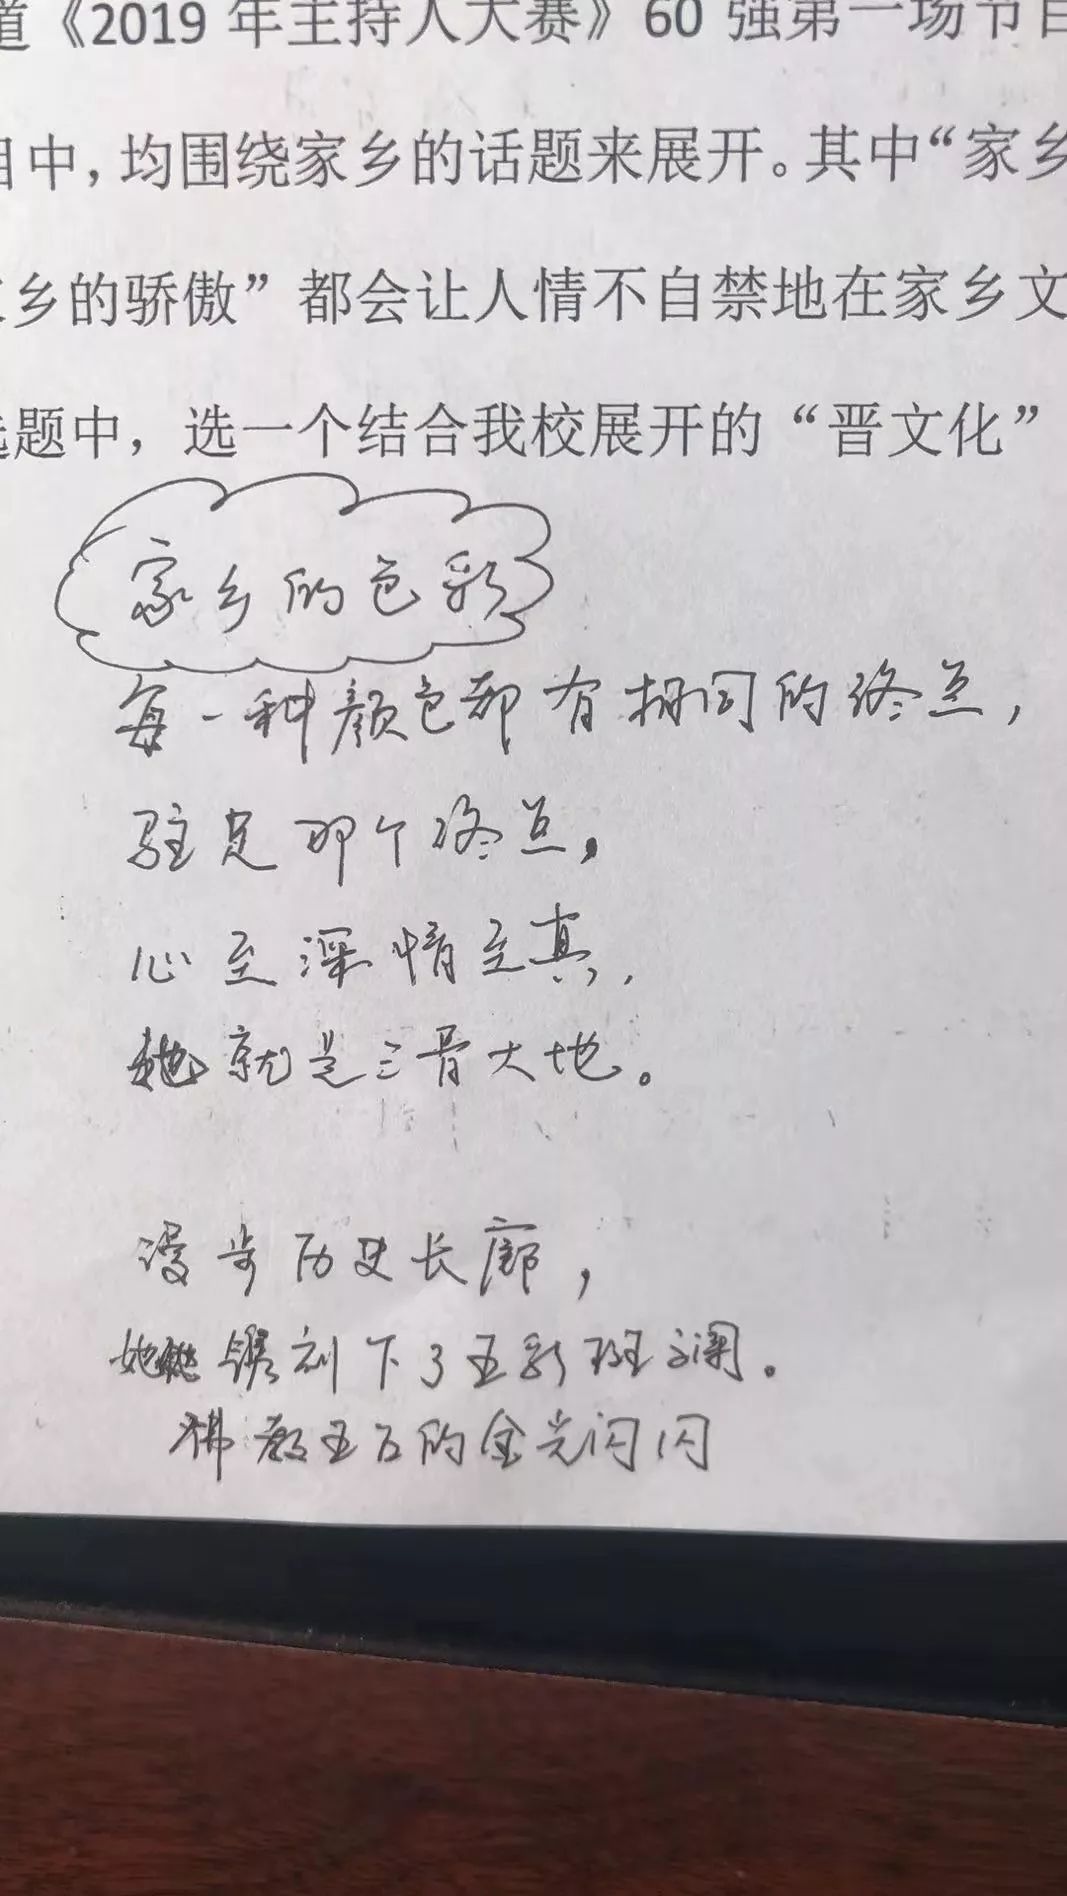 道《2019 年主持人大赛》60 强第一场节目
目中，均围绕家乡的话题来展开。其中“家乡
乡的骄傲”都会让人情不自禁地在家乡文
题中，选一个结合我校展开的“晋文化”
家乡的色彩
每一种颜色都有相同的终点，
驻足那个终点，
心至深情至真，
她就是三晋大地。
漫步历史长廊，
她镌刻下了五彩斑斓。
佛都五台的金光闪闪